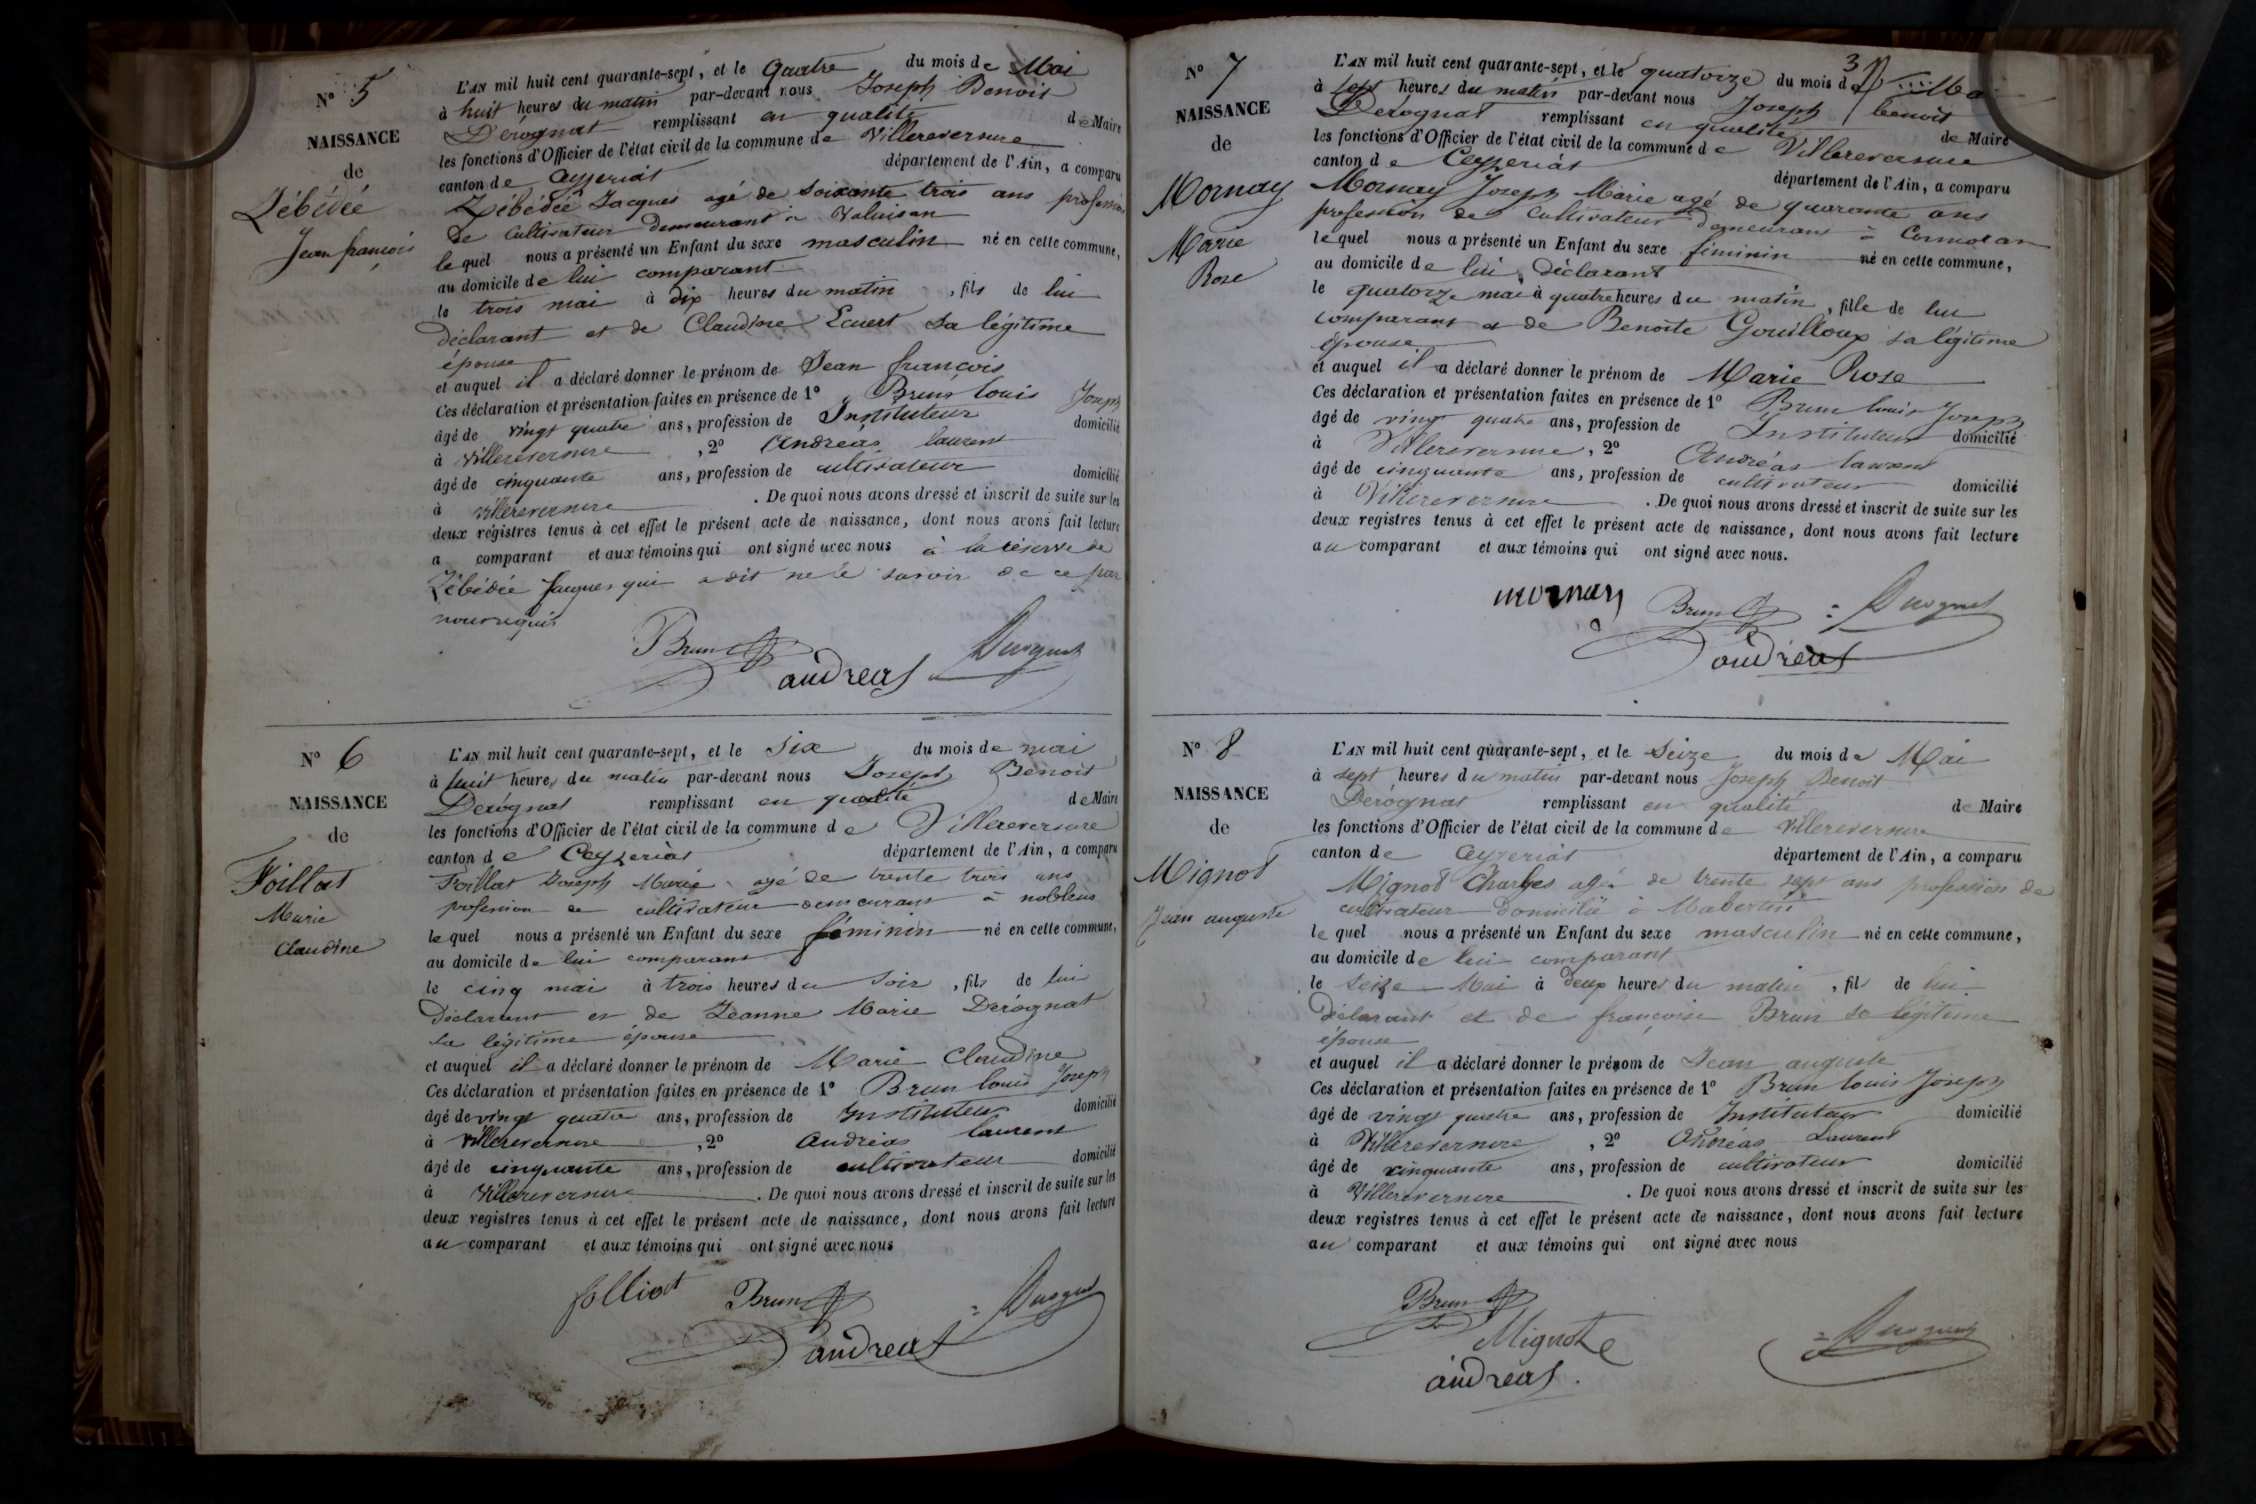 N° 5
NAISSANCE
de
Zébédée
Jean françois
L'AN mil huit cent quarante-sept, et le Quatre du mois de Mai
à huit heures du matin par-devant nous Joseph Benoit
Dérognat remplissant en qualité de Maire
les fonctions d'Officier de l'état civil de la commune de Villereversure
canton de Ceyzeriat département de l'Ain, a comparu
Zébédée Jacques agé de soixante trois ans profession
de cultivateur demeurant à
lequel nous a présenté un Enfant du sexe masculin né en cette commune,
au domicile de lui comparant
le trois mai à dix heures du matin, fils de lui
déclarant et de Claudine Ecuert sa légitime
épouse
et auquel il a déclaré donner le prénom de Jean françois
Ces déclaration et présentation faites en présence de 1° Brun louis Joseph
âgé de vingt quatre ans, profession de Instituteur domicilié
à Villereversure, 2° Andréas laurent
âgé de cinquante ans, profession de cultivateur domicilié
à villereversure. De quoi nous avons dressé et inscrit de suite sur les
deux régistres tenus à cet effet le présent acte de naissance, dont nous avons fait lecture
a comparant et aux témoins qui ont signé avec nous à la réserve de
Zébédée Jacques qui a dit ne le savoir de ce par
nous requis
Brun
andreas
Derognat
N° 6
NAISSANCE
de
Foillat
Marie
Claudine
L'AN mil huit cent quarante-sept, et le six du mois de mai
à huit heures du matin par-devant nous Joseph Benoit
Dérognat remplissant en qualité de Maire
les fonctions d'Officier de l'état civil de la commune de Villereversure
canton de Ceyzeriat département de l'Ain, a comparu
Foillat Joseph Marie agé de trente trois ans
profession de cultivateur demeurant à noblens
lequel nous a présenté un Enfant du sexe féminin né en cette commune,
au domicile de lui comparant
le cinq mai à trois heures du soir, fils de lui
Déclarant et de Jeanne Marie Dérognat
sa légitime épouse
et auquel il a déclaré donner le prénom de Marie Claudine
Ces déclaration et présentation faites en présence de 1° Brun louis Joseph
âgé de vingt quatre ans, profession de Instituteur domicilié
à Villereversure, 2° Andréas laurent
âgé de cinquante ans, profession de cultivateur domicilié
à Villereversure. De quoi nous avons dressé et inscrit de suite sur les
deux registres tenus à cet effet le présent acte de naissance, dont nous avons fait lecture
au comparant et aux témoins qui ont signé avec nous
folliat
Brun
andreas
Derognat
37
N° 7
NAISSANCE
de
Mornay
Marie
Rose
L'AN mil huit cent quarante-sept, et le quatorze du mois de Mai
à sept heures du matin par-devant nous Joseph benoit
Dérognat remplissant en qualité de Maire
les fonctions d'Officier de l'état civil de la commune de Villereversure
canton de Ceyzeriat département de l'Ain, a comparu
Mornay Joseph Marie agé de quarante ans
profession de cultivateur demeurant à
lequel nous a présenté un Enfant du sexe féminin né en cette commune,
au domicile de lui déclarant
le quatorze mai à quatre heures du matin, fille de lui
comparant et de Benoite Gouilloux sa légitime
épouse
et auquel il a déclaré donner le prénom de Marie Rose
Ces déclaration et présentation faites en présence de 1° Brun louis Joseph
âgé de vingt quatre ans, profession de Instituteur domicilié
à Villereversure, 2° Andréas laurent
âgé de cinquante ans, profession de cultivateur domicilié
à Villereversure. De quoi nous avons dressé et inscrit de suite sur les
deux registres tenus à cet effet le présent acte de naissance, dont nous avons fait lecture
au comparant et aux témoins qui ont signé avec nous.
mornay
Brun
Derognat
andréas
N° 8
NAISSANCE
de
Mignot
Jean auguste
L'AN mil huit cent quarante-sept, et le Seize du mois de Mai
à sept heures du matin par-devant nous Joseph Benoit
Dérognat remplissant en qualité de Maire
les fonctions d'Officier de l'état civil de la commune de Villereversure
canton de Ceyzeriat département de l'Ain, a comparu
Mignot Charles agé de trente sept ans profession de
cultivateur domicilié à
lequel nous a présenté un Enfant du sexe masculin né en cette commune,
au domicile de lui comparant
le seize Mai à deux heures du matin, fils de lui
déclarant et de françoise Brun sa légitime
épouse
et auquel il a déclaré donner le prénom de Jean auguste
Ces déclaration et présentation faites en présence de 1° Brun louis Joseph
âgé de vingt quatre ans, profession de Instituteur domicilié
à Villereversure, 2° Andréas Laurent
âgé de cinquante ans, profession de cultivateur domicilié
à Villereversure. De quoi nous avons dressé et inscrit de suite sur les
deux registres tenus à cet effet le présent acte de naissance, dont nous avons fait lecture
au comparant et aux témoins qui ont signé avec nous
Brun
Mignot
andreas.
Derognat